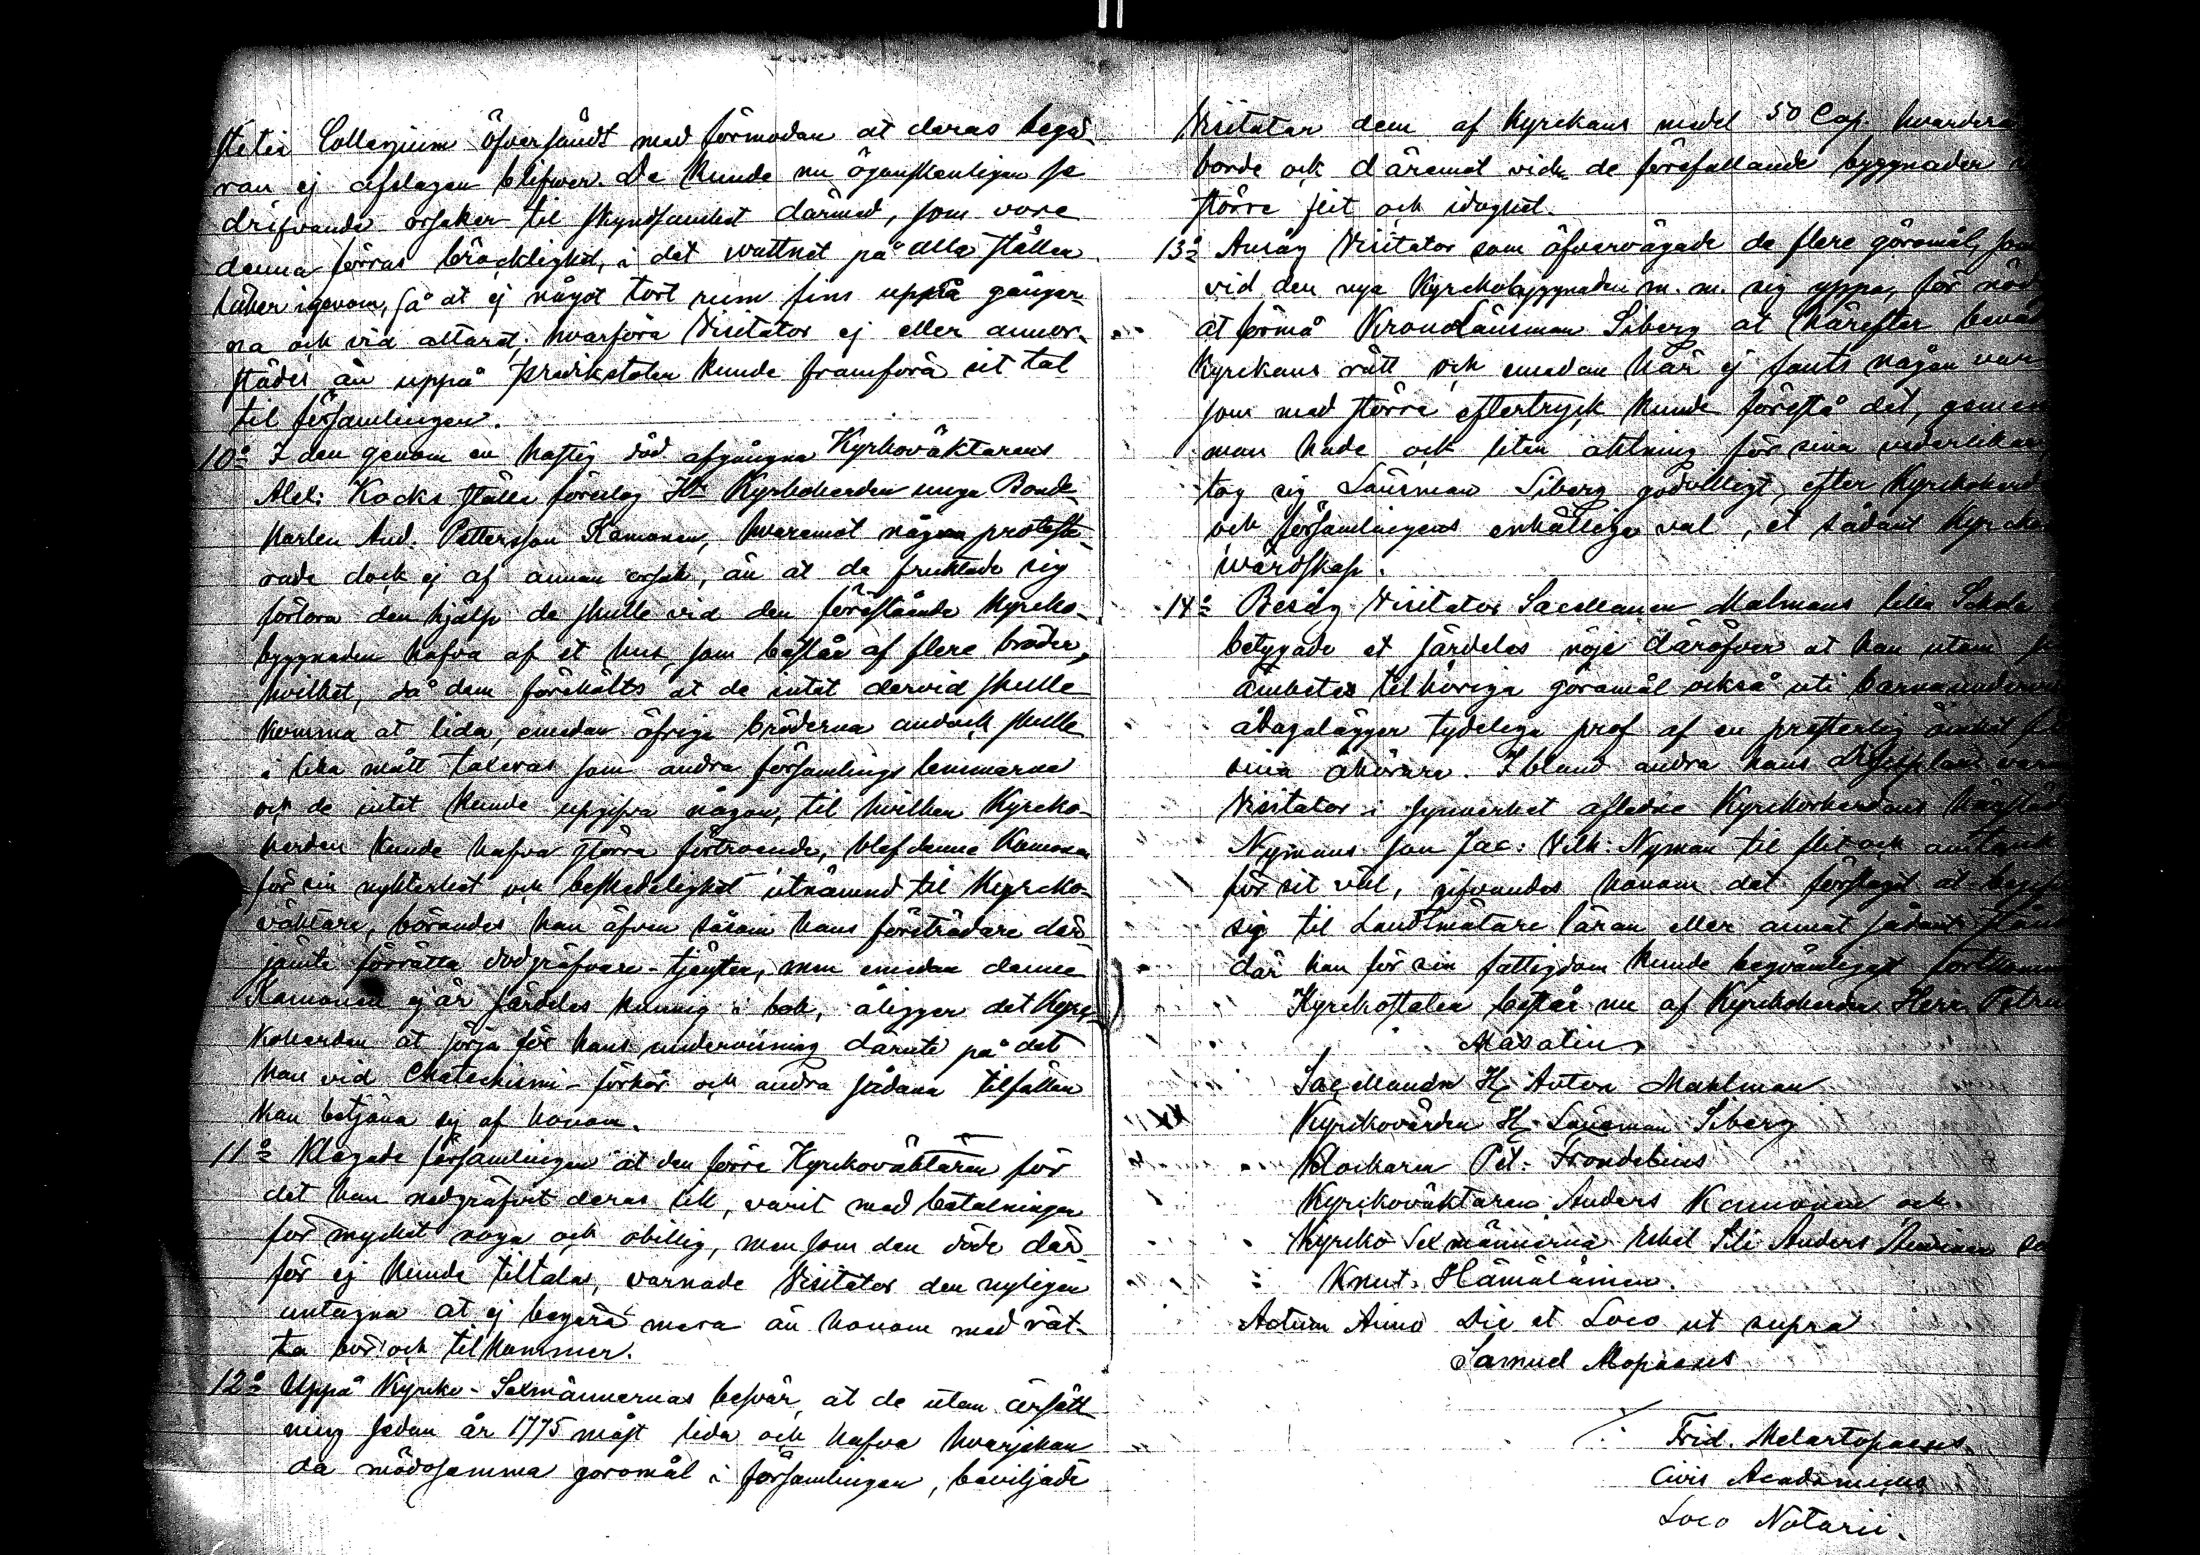 Collegium öfversändt med förmodan at deras begä-
ran ej afslagen blifwer. De kunde nu ögonskenligen se
drifvande orsaker til skyndsamhet därmed, som vore
denna förras bräcklighet, i det wattnet på alla ställen
igenom, så at ej något tort rum fins uppå gånger-
na och vid altaret; hvarföre Visitator ej eller annor-
städes än uppå predikstolen kunde framföra sit tal
til församlingen.
10:o I den genom en hastig död afgångna Kyrkoväktarens
Kocks ställe föreslog Hr Kyrkoherden unga Bonde-
karlen And. Pettersson Kamonen, hvaremot någre proteste-
rade dock ej af annan orsak, än at de fruktade sig
förlora den hjälp de skulle vid den förestående Kyrcko-
byggnaden hafva af et hus, som består af flere bröder,
hvilket, då dem förehölts at de intet dervid skulle
komma at lida, emedan öfriga bröderna ändock skulle
i lika mått taxeras som andra församlings lemmarne
och de intet kunde upgifva någon, til hvilken Kyrcko-
herden kunde hafva större förtroende, blef denne Kamonen
för sin nykterhet och beskedelighet utnämnd til Kyrcko-
väktare, börandes han äfven såsom hans företrädare där
jämte förrätta dödgräfvare-tjensten, men emedan denne
Kamonen ej är särdeles kunnig i bok, åligger det Kyrc-
koherden at sörja för hans undervisning däruti på det
han vid Chatechismi-förhör och andra sådana tilfällen
kan betjäna sig af honom.
11:o Klagade församlingen at den förre Kyrckoväktaren för
det han nedgräfvit deras lik, varit med betalningen
för mycket noga och obillig, men som den döde där
för ej kunde tiltalas, varnade Visitator den nyligen
antagna at ej begära mera än honom med rät-
ta bör och tilkommer.
12:o Uppå Kyrko-Sexmännernas besvär, at de utan ersätt
ning sedan år 1775 måst lida och hafva hvarjehan
da mödosamma göromål i församlingen, beviljade
Visitator dem af Kyrckans medel 50 Cop. hvardera
borde och däremot vid de förefallande byggnader
större flit och idoghet.
13:o Ansåg Visitator som öfvervägade de flere göromål, som
vid den nya Kyrckobyggnaden m. m. sig yppa, för nöd
at förmå Kronolänsman Siberg at härefter bevaka
Kyrckans rätt och emedan här ej fants någon
som med större eftertryck kunde förestå det,
man hade och liten aktning för sina vederlikar
tog sig Länsman Siberg godvilligt, efter Kyrckoherd
och församlingens enhälliga val, et sådant Kyrcko
wärdskap.
14:o Besåg Visitator Sacellanen Malmans lilla Schola
betygade et särdeles nöje däröfver at han utom
ämbetes tilhöriga göromål också uti barnaundervis
ådagalägger tydeliga prof af en presterlig ömhet
sina åhörare. Ibland andra hans
Visitator i synnerhet afledne Kyrckoherdens
Nymans son Jac: Vilh: Nyman til flit och omtank
för sit väl, gifvandes honom det förslaget at begifva
sig til Landtmätare läran eller annat sådant
där han för sin fattigdom kunde beqvämligast fortkomma
Kyrckostaten består nu af Kyrckoherden Herr Petru
Masalin
Sacellanen H. Anton Mahlman
Kyrckovärden H. Länsman Siberg
Klockaren Pet. Frondelius
Kyrckoväktaren Anders Kamonen och
Kyrcko Sexmännerna Eskil Anders
Knut. Hämäläinen.
Actum Anno Die et Loco ut supra
Samuel Alopaeus
Frid. Melartopaeus
Civis Academicus
Loco Notarii.